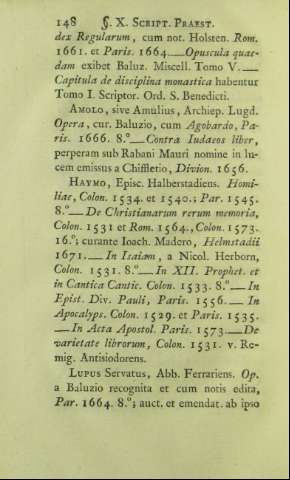 148 §. X. SCRIPT. PRAEST.
dex Regularum, cum not. Holsten. Rom.
1661. et Paris. 1664.—Opuscula quae-
dam exibet Baluz. Miscell. Tomo V.—
Capitula de disciplina monastica habentur
Tomo I. Scriptor. Ord. S. Benedicti.
AMOLO, sive Amulius, Archiep. Lugd.
Opera, cur. Baluzio, cum Agobardo, Pa-
ris. 1666. 8.°—Contra Iudaeos liber,
perperam sub Rabani Mauri nomine in lu-
cem emissus a Chiffletio, Divion. 1656.
HAYMO, Episc. Halberstadiens. Homi-
liae, Colon. 1534. et 1540.; Par. 1545.
8.°—De Christianarum rerum memoria,
Colon. 1531 et Rom. 1564., Colon. 1573.
16.°; curante Ioach. Madero, Helmstadii
1671.—In Isaiam, a Nicol. Herborn,
Colon. 1531. 8.°—In XII. Prophet. et
in Cantica Cantic. Colon. 1533. 8.°—In
Epist. Div. Pauli, Paris. 1556.—In
Apocalyps. Colon. 1529. et Paris. 1535.
—In Acta Apostol. Paris. 1573.—De
varietate librorum, Colon. 1531. v. Re-
mig. Antisiodorens.
LUPUS Servatus, Abb. Ferrariens. Op.
a Baluzio recognita et cum notis edita,
Par. 1664. 8.°; auct. et emendat. ab ipso